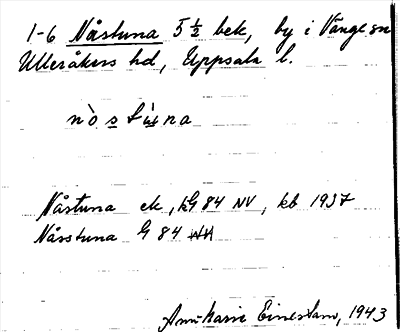 1-6 Nåstuna 5 1/2 bek, by i Vänge sn
Ulleråkers hd, Uppsala l.
nò s tù na
Nåstuna ek, kG 84 NV, kb 1937
Nåsstuna G 84 NV
Ann-Marie, 1943